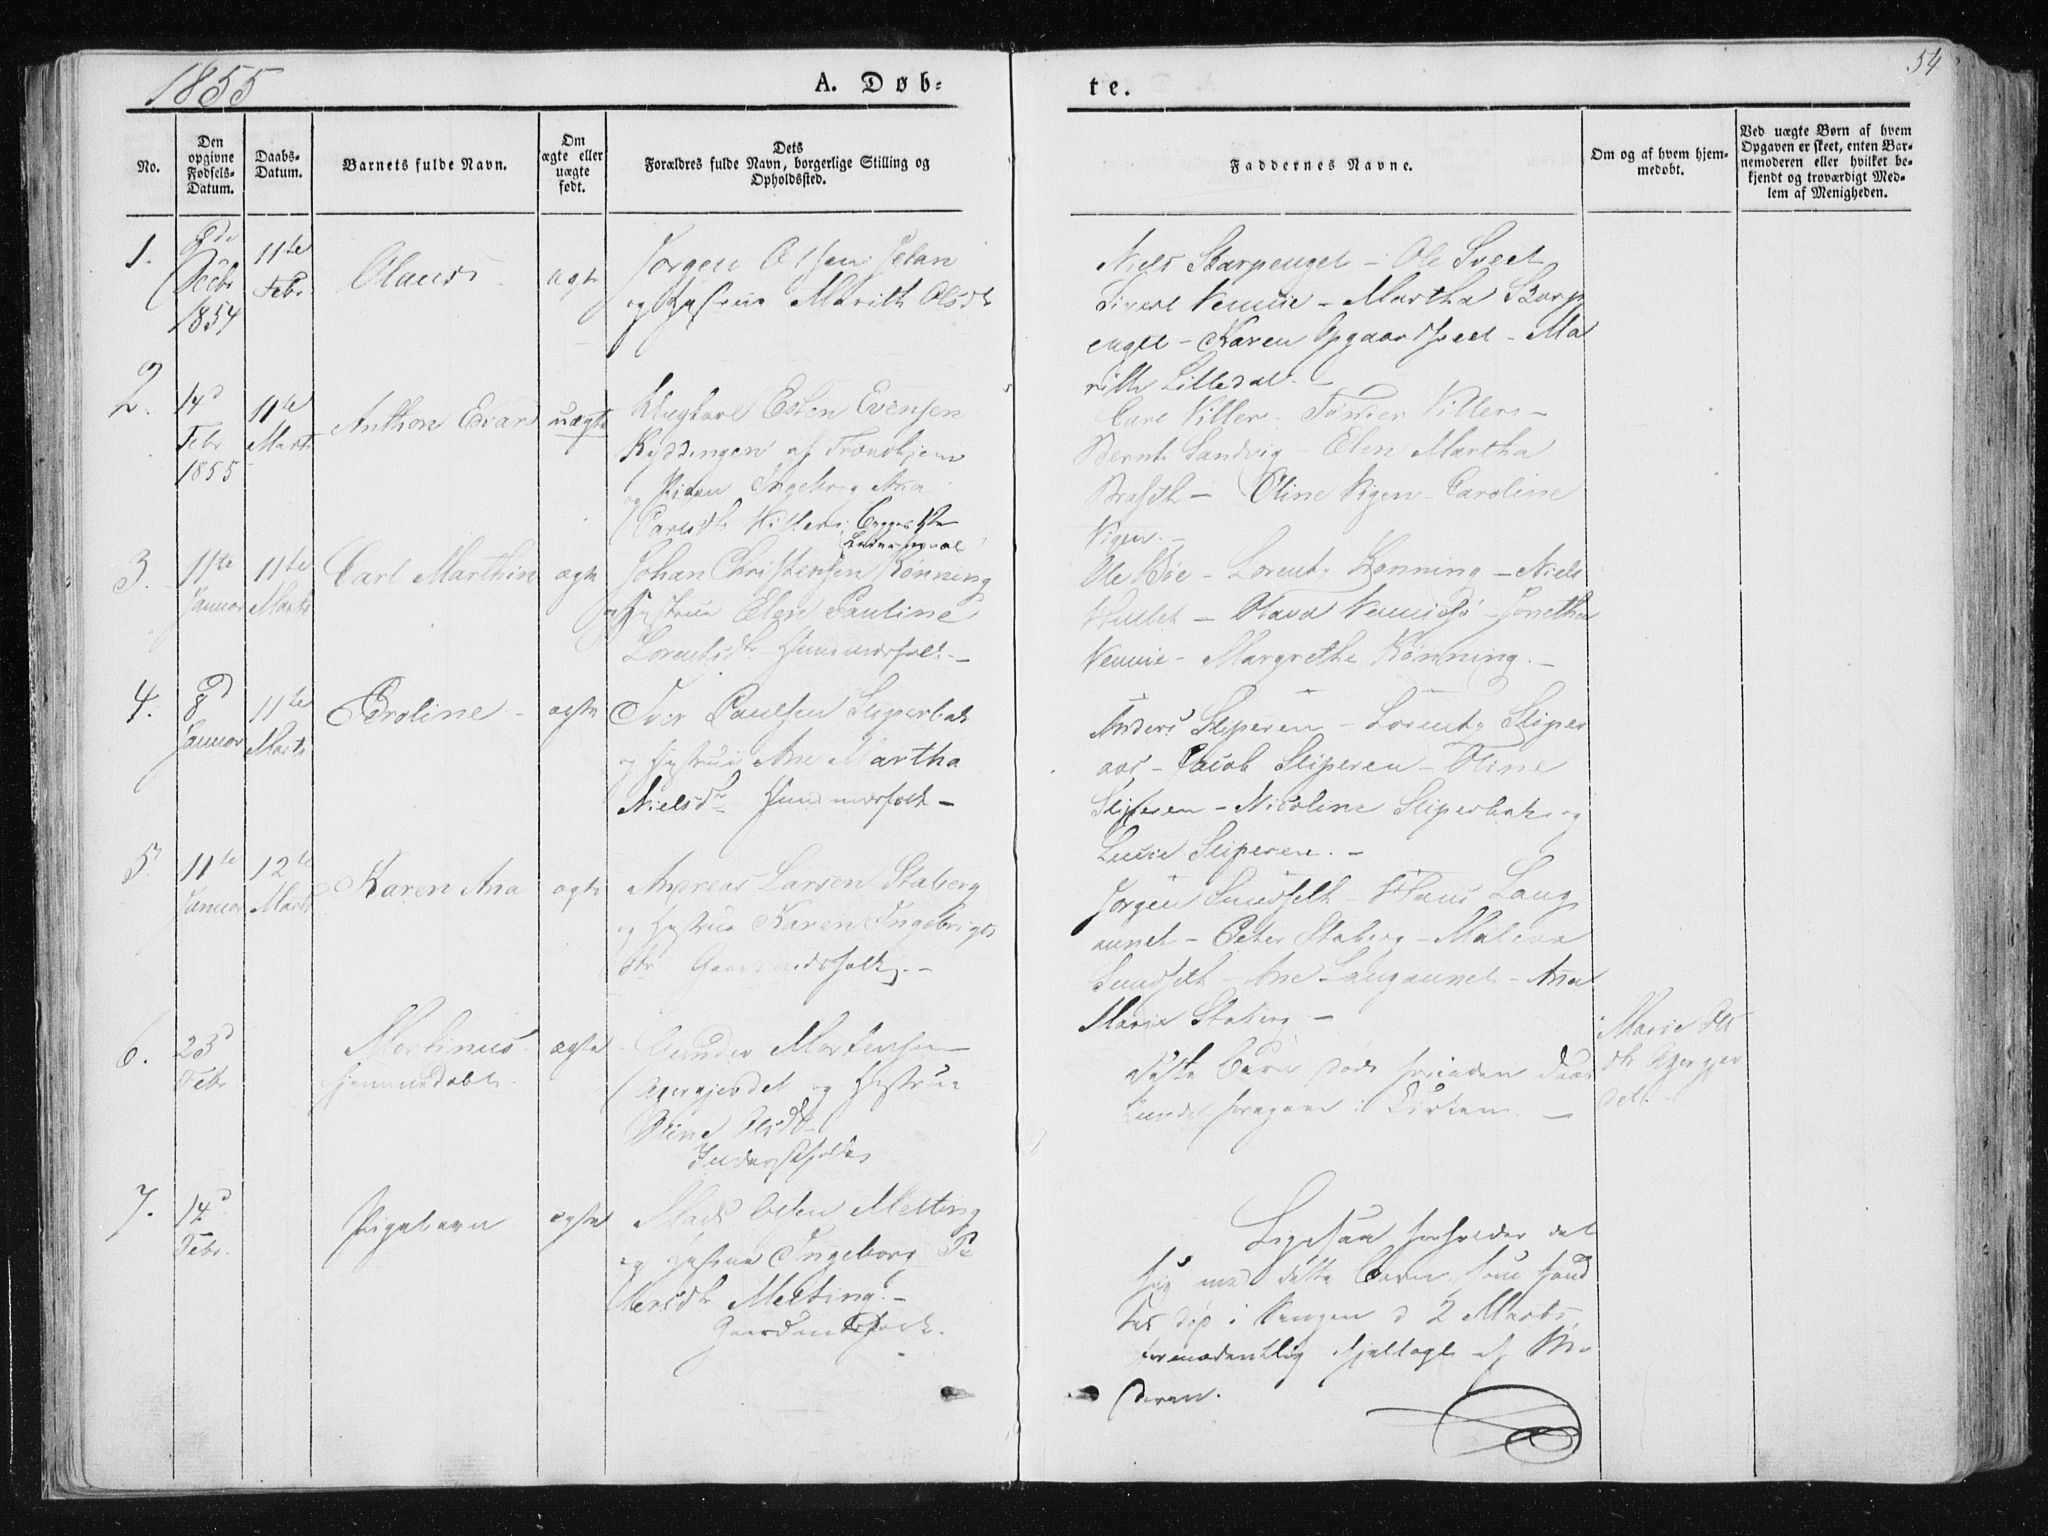 1855
A. Døb-
te.
54
No.
Den opgivne Fødsels-Datum.
Daabs-Datum.
Barnets fulde Navn.
Om ægte eller uægte født.
Dets Forældres fulde Navn, borgerlige Stilling og Opholdssted.
Faddernes Navne.
Om og af hvem hjem-medøbt.
Ved uægte Børn af hvem Opgaven er skeet, enten Bar-nemoderen eller hvilket be-kjendt og troværdigt Med-lem af Menigheden.
1.
Decbr
1854
11te
Febr
Olaus
ægte
Jørgen Olsen
og Hustrue Marith Olsdtr
Niels Skarpenget - Ole
Sivert Vennie - Martha Skarp
enget - Karen - Ma
rith Lilledal. -
2.
14d
Febr
1855
11te
Marts
Anthon Edvard
uægte
Esten Evensen
Ryddingen af Trondhjem
og Pigen Ingeborg Ana
Carlsdtr
Bernt Sandvig - Elen Martha
- Oline Vigen - Caroline
Vigen. -
3.
11te
Januar
11te
Marts
Carl Marthin
ægte
Johan Christensen Rønning
og Hustrue Elen Pauline
Lorentsdtr Huusmandsfolk. -
Ole Bøe - Lorents Rønning - Niels
- Olava - Jonetha
Vennie - Margrethe Rønning. -
4.
8d
Januar
11te
Marts
Caroline -
ægte
Iver Paulsen Sliperbak
og Hustrue Ane Martha
Nielsdtr Huusmandsfolk -
Anders Sliperen - Lorents Sliper
aas - Jacob Sliperen - Oline
Sliperen - Nicoline Sliperbak og
Lucie Sliperen. -
5.
11te
Januar
12te
Marts
Karen Ana
ægte
Andreas Larsen Staberg
og Hustrue Karen Ingebrigts
dtr Gaardmandsfolk. -
Jørgen Sundseth - Hans Laug
aunet - Peter Staberg - Malena
Sundseth - Ane Laugaunet - Ana
Marie Staberg. -
6.
23d
Febr
Martinus
hjemmedøbt.
ægte
Gunder Mortensen
Agergjerdet og Hustrue
Oline Olsdtr
Inderstfolk
Dette Barn døde førenden Daab
kunde foregaae i Kirken. -
Marie Ols
dtr Agergjer
det.
7.
14d
Febr.
Pigebarn
ægte
Mads Olsen Melting
og Hustrue Ingeborg Pe
tersdtr Melting. -
Gaardmandsfolk.
Ligesaa forholder det
sig med dette Barn, som fand
tes død i Sengen d 2 Marts,
formodentlig ihjellagt af Mo
deren.